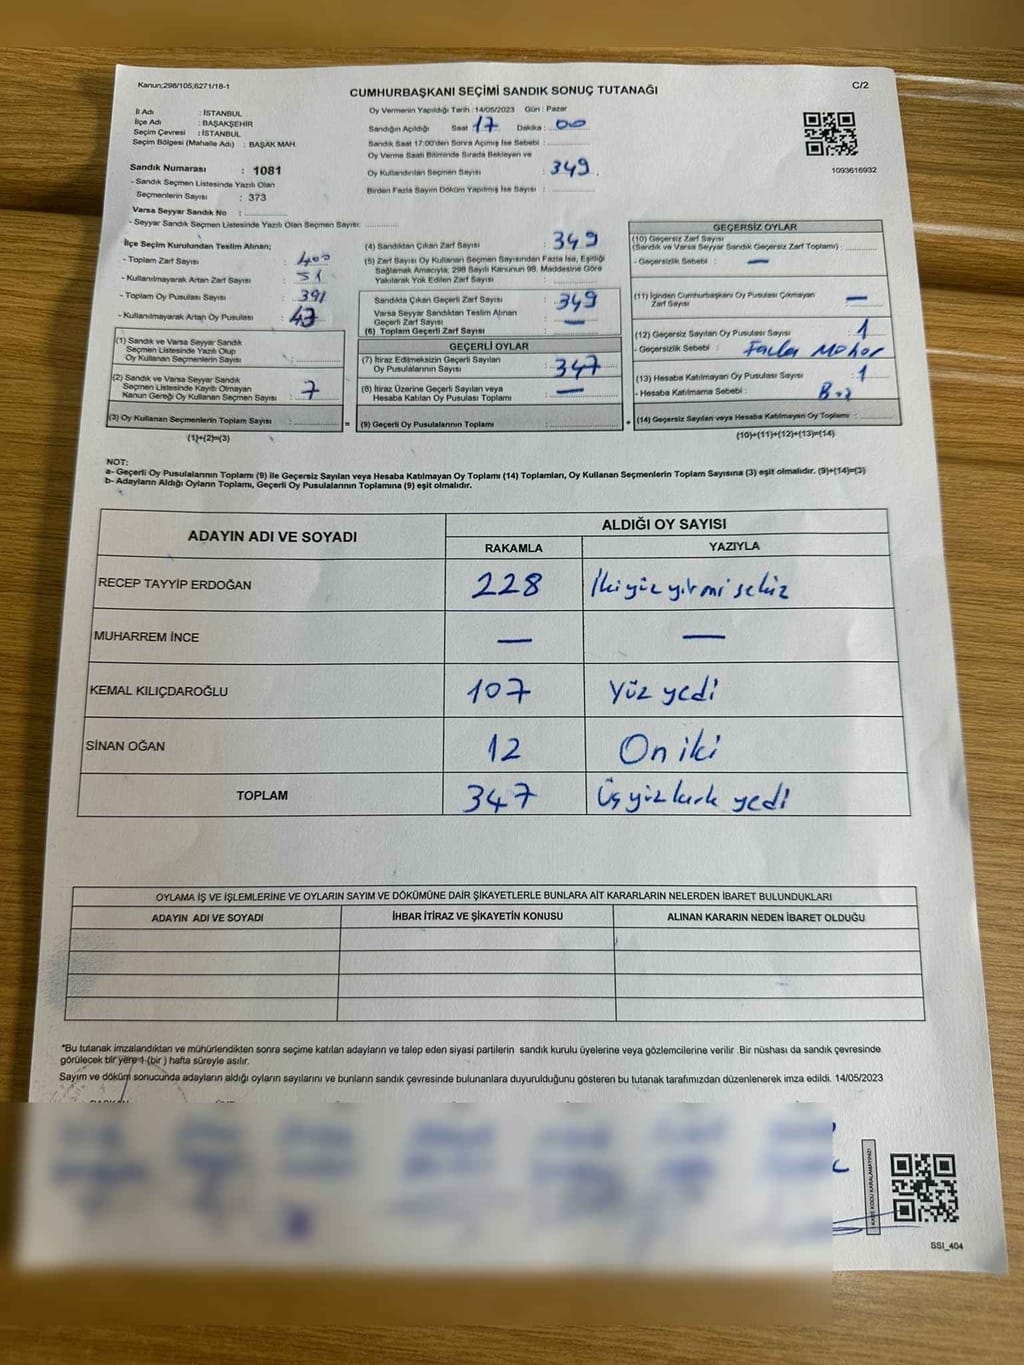 Kanun;298/105;6271/18-1
CUMHURBAŞKANI SEÇİMİ SANDIK SONUÇ TUTANAĞI
C/2
İl Adı : İSTANBUL
İlçe Adı : BAŞAKŞEHİR
Seçim Çevresi : İSTANBUL
Seçim Bölgesi (Mahalle Adı) : BAŞAK MAH.
Sandık Numarası : 1081
- Sandık Seçmen Listesinde Yazılı Olan
Seçmenlerin Sayısı : 373
Varsa Seyyar Sandık No :
- Seyyar Sandık Seçmen Listesinde Yazılı Olan Seçmen Sayısı:
Oy Vermenin Yapıldığı Tarih : 14/05/2023 Gün : Pazar
Sandığın Açıldığı Saat 17 Dakika : 00
Sandık Saat 17:00'den Sonra Açımış İse Sebebi :
Oy Verme Saati Bitiminde Sırada Bekleyen ve
Oy Kullandırılan Seçmen Sayısı : 349
Birden Fazla Sayım Döküm Yapılmış İse Sayısı :
1093616932
İlçe Seçim Kurulundan Teslim Alınan;
- Toplam Zarf Sayısı : 400
- Kullanılmayarak Artan Zarf Sayısı : 51
- Toplam Oy Pusulası Sayısı : 391
- Kullanılmayarak Artan Oy Pusulası :
(1) Sandık ve Varsa Seyyar Sandık
Seçmen Listesinde Yazılı Olup
Oy Kullanan Seçmenlerin Sayısı :
(2) Sandık ve Varsa Seyyar Sandık
Seçmen Listesinde Kayıtlı Olmayan
Kanun Gereği Oy Kullanan Seçmen Sayısı : 7
(3) Oy Kullanan Seçmenlerin Toplam Sayısı :
(1)+(2)=(3)
(4) Sandıktan Çıkan Zarf Sayısı : 349
(5) Zarf Sayısı Oy Kullanan Seçmen Sayısından Fazla İse, Eşitliği
Sağlamak Amacıyla; 298 Sayılı Kanunun 98. Maddesine Göre
Yakılarak Yok Edilen Zarf Sayısı :
Sandıkta Çıkan Geçerli Zarf Sayısı : 349
Varsa Seyyar Sandıktan Teslim Alınan
Geçerli Zarf Sayısı : —
(6) Toplam Geçerli Zarf Sayısı :
GEÇERLİ OYLAR
(7) İtiraz Edilmeksizin Geçerli Sayılan
Oy Pusulalarının Sayısı : 347
(8) İtiraz Üzerine Geçerli Sayılan veya
Hesaba Katılan Oy Pusulası Toplamı : —
= (9) Geçerli Oy Pusulalarının Toplamı :
GEÇERSİZ OYLAR
(10) Geçersiz Zarf Sayısı
(Sandık ve Varsa Seyyar Sandık Geçersiz Zarf Toplamı) :
- Geçersizlik Sebebi : —
(11) İçinden Cumhurbaşkanı Oy Pusulası Çıkmayan
Zarf Sayısı : —
(12) Geçersiz Sayılan Oy Pusulası Sayısı : 1
- Geçersizlik Sebebi :
(13) Hesaba Katılmayan Oy Pusulası Sayısı : 1
- Hesaba Katılmama Sebebi :
+ (14) Geçersiz Sayılan veya Hesaba Katılmayan Oy Toplamı :
(10)+(11)+(12)+(13)=(14)
NOT:
a- Geçerli Oy Pusulalarının Toplamı (9) ile Geçersiz Sayılan veya Hesaba Katılmayan Oy Toplamı (14) Toplamları, Oy Kullanan Seçmenlerin Toplam Sayısına (3) eşit olmalıdır. (9)+(14)=(3)
b- Adayların Aldığı Oyların Toplamı, Geçerli Oy Pusulalarının Toplamına (9) eşit olmalıdır.
ADAYIN ADI VE SOYADI ALDIĞI OY SAYISI
RAKAMLA YAZIYLA
RECEP TAYYİP ERDOĞAN 228 İkiyüz yirmi sekiz
MUHARREM İNCE — —
KEMAL KILIÇDAROĞLU 107 Yüz yedi
SİNAN OĞAN 12 On iki
TOPLAM 347 Üçyüz kırk yedi
OYLAMA İŞ VE İŞLEMLERİNE VE OYLARIN SAYIM VE DÖKÜMÜNE DAİR ŞİKAYETLERLE BUNLARA AİT KARARLARIN NELERDEN İBARET BULUNDUKLARI
ADAYIN ADI VE SOYADI İHBAR İTİRAZ VE ŞİKAYETİN KONUSU ALINAN KARARIN NEDEN İBARET OLDUĞU
*Bu tutanak imzalandıktan ve mühürlendikten sonra seçime katılan adayların ve talep eden siyasi partilerin sandık kurulu üyelerine veya gözlemcilerine verilir .Bir nüshası da sandık çevresinde
görülecek bir yere 1 (bir ) hafta süreyle asılır.
Sayım ve döküm sonucunda adayların aldığı oyların sayılarını ve bunların sandık çevresinde bulunanlara duyurulduğunu gösteren bu tutanak tarafımızdan düzenlenerek imza edildi. 14/05/2023
KARE KODU KARALAMAYINIZ!
SSİ_404